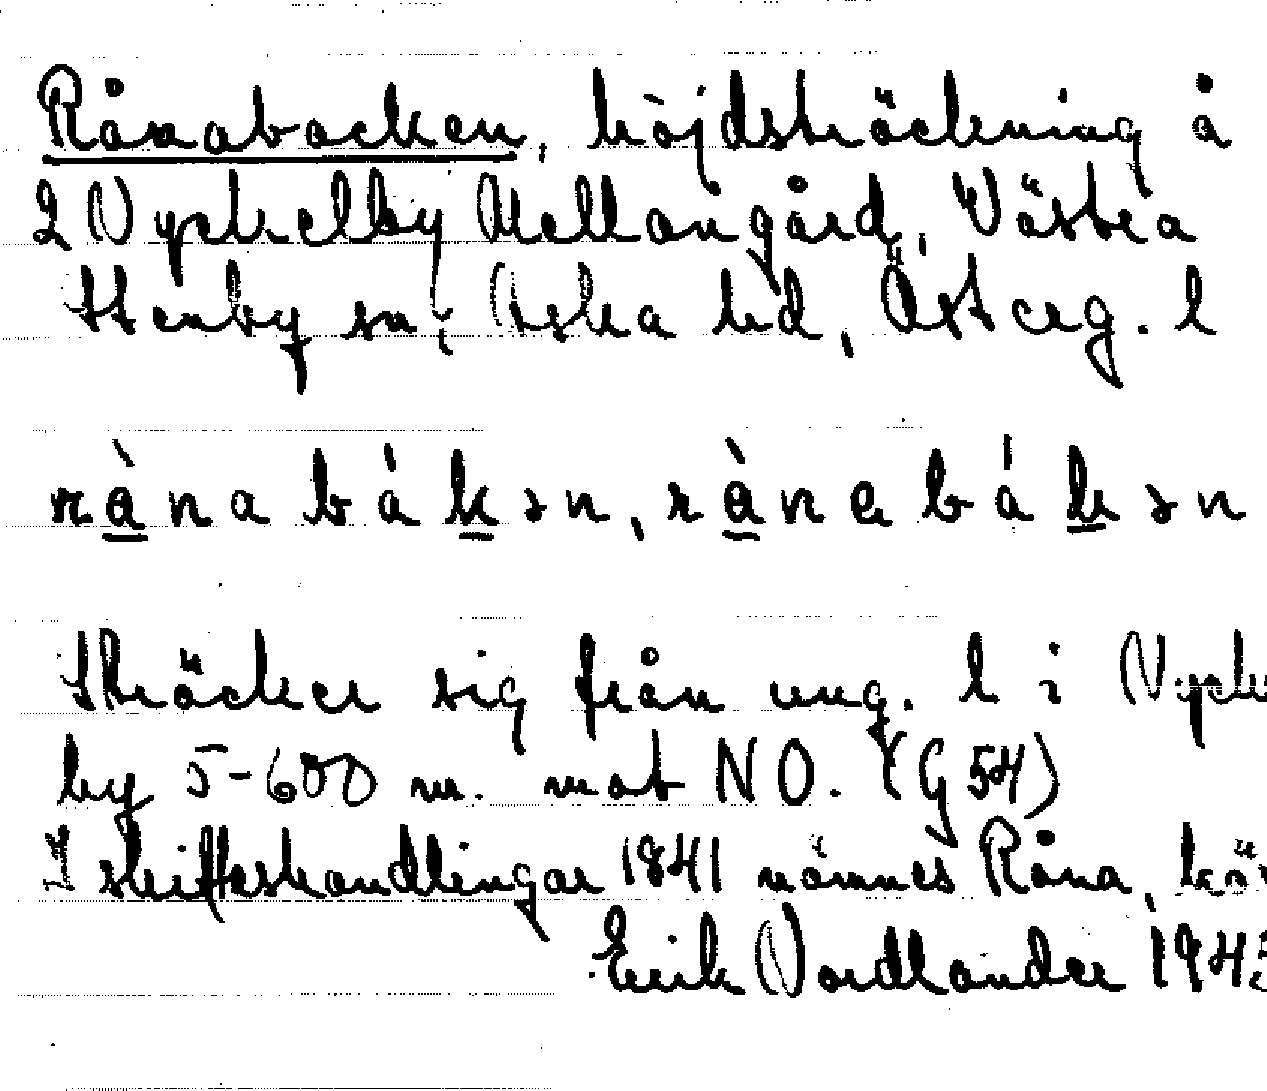 Rånabacken, höjdsträckning å
2 Nyckelby Mellangård, Västra
Stenby sn, Aska hd, Österg. l
rànabákən, rànabákən
Sträcker sig från ung. l i Nyck
by 5-600 m. mot NO. (G 54)
I skifteshandlingar 1841 nämnes Råna, hö
Erik Nordlander 194